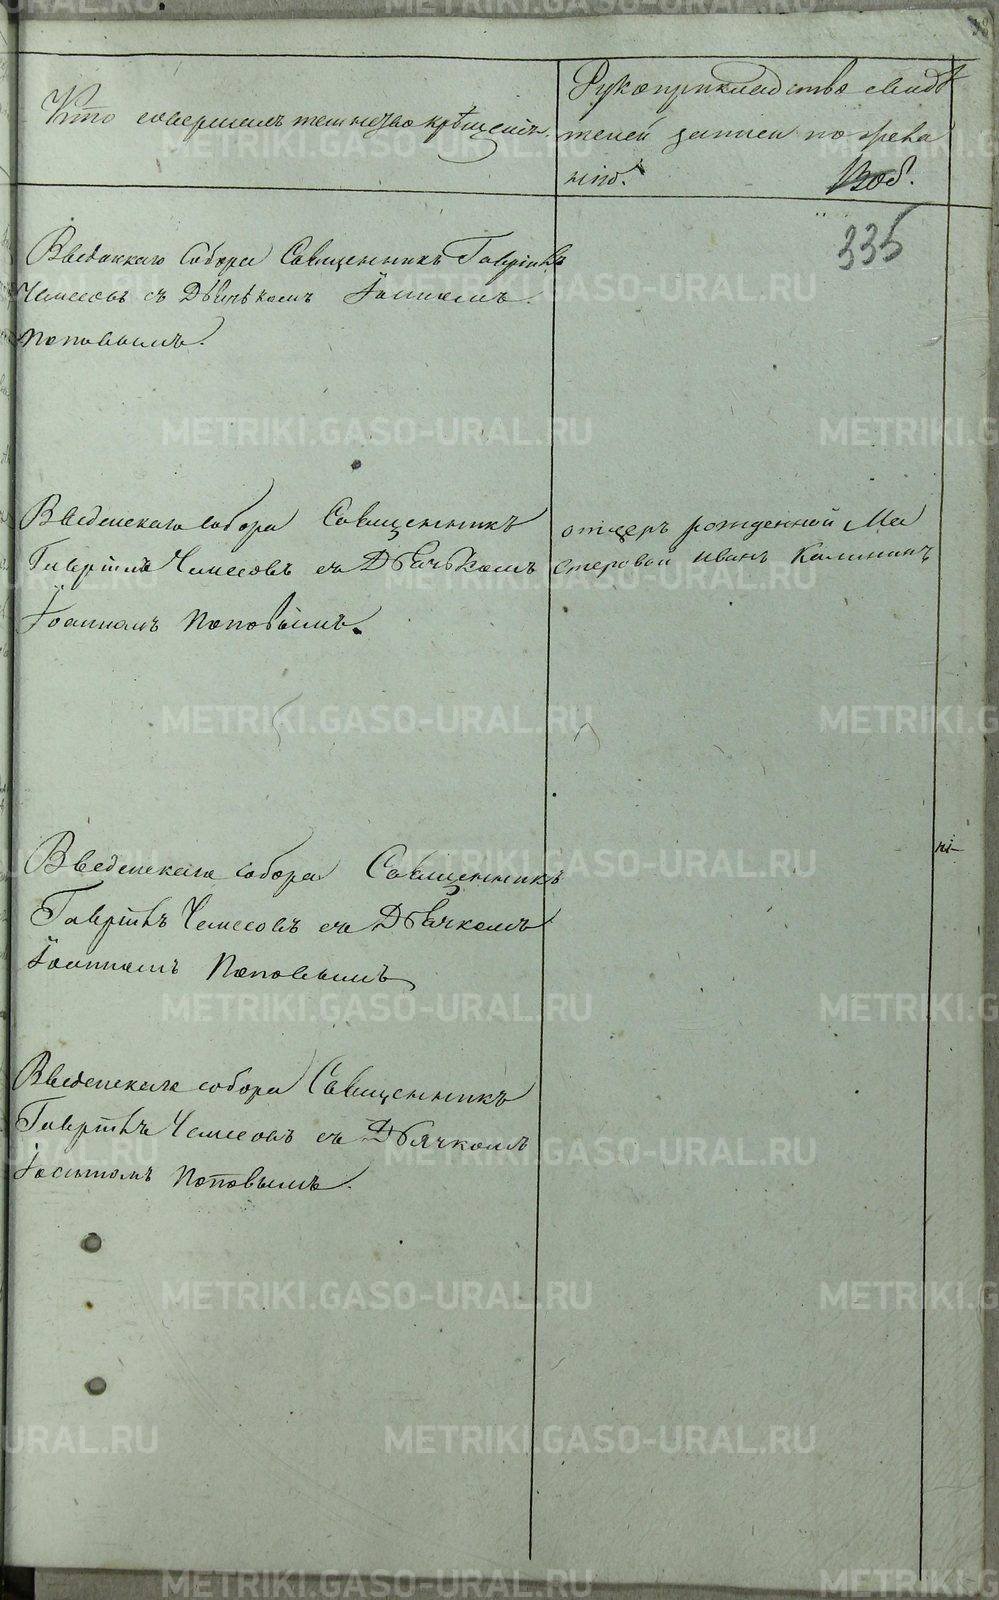 Кто совершалъ таинство крѣщенія.
Рукоприкладство свидѣ
телей записи по жела
нію.
335
Введенскаго Собора Священникъ Гавріилъ
Чемесовъ съ Дьячькомъ Іоанномъ
Поповымъ.
Введенскаго Собора Священникъ
Гавріилъ Чемесовъ съ Дьячькомъ
Іоанномъ Поповымъ.
отецъ рожденной Ма
стеровой Иванъ Калининъ
Введенскаго собора Священникъ
Гавріилъ Чемесовъ съ Дьячкомъ
Іоанномъ Поповымъ
Введенскаго собора Священникъ
Гавріилъ Чемесовъ съ Дьячкомъ
Іоанномъ Поповымъ.
METRIKI.GASO-URAL.RU